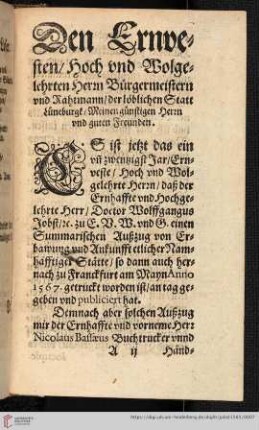 Den Ernve-
sten/Hoch vnd Wolge-
lehrten Herrn Bürgermeistern
vnd Rahtmann/der löblichen Statt
Lüneburgk/Meinen günstigen Herrn
vnd guten Freunden.
ES ist jetzt das ein
vñ zwentzigst Jar/Ern-
veste/Hoch vnd Wol-
gelehrte Herrn/daß der
Ernhaffte vnd Hochge-
lehrte Herr/Doctor Wolffgangus
Jobst/rc. zu E. V. W. vnd G. einen
Summarischen Außzug von Er-
bawung vnd Ankunfft etlicher Nam
hafftiger Stätte/so dann auch her-
nach zu Franckfurt am Mayn Anno
1567. getruckt worden ist/an tag ge-
geben vnd publiciert hat.
Demnach aber solchen Außzug
mir der Ernhaffte vnd vorneme Herr
Nicolaus Bassæus Buchtrucker vnnd
A ij Händ-